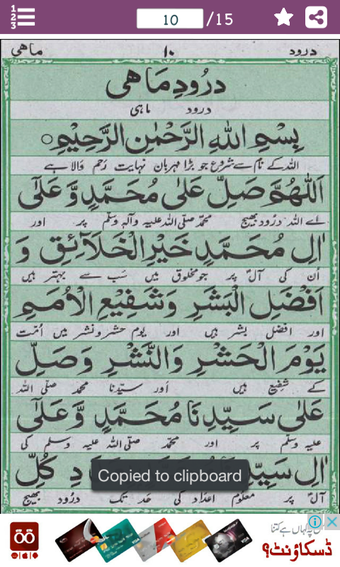 10 /15
ماہی ١٠ درود
درُودِ مَاهِی
درود ماہی
بِسْمِ اللهِ الرَّحْمٰنِ الرَّحِيْمِ
اللہ کے نام سے شروع جو بڑا مہربان نہایت رحم والا ہے
اَللّٰهُمَّ صَلِّ عَلٰى مُحَمَّدٍ وَّعَلٰى
اے اللہ درُود بھیج محمّد صلی اللہ علیہ وآلہٖ وسلم پر اور
اٰلِ مُحَمَّدٍ خَيْرِ الْخَلَآئِقِ وَ
اُن کی آل پر جو مخلوق میں سب سے بہتر ہیں
اَفْضَلِ الْبَشَرِ وَشَفِيْعِ الْاُمَمِ
اور افضل بشر ہیں اور یوم حشر و نشر میں اُمّت
يَوْمَ الْحَشْرِ وَالنَّشْرِ وَصَلِّ
کے شفیع ہیں اور سیّدنا محمّد صلی اللہ
عَلٰى سَيِّدِنَا مُحَمَّدٍ وَّعَلٰى
علیہ وسلم پر اور محمّد صلی اللہ علیہ وسلم کی
اٰلِ سَيِّدِنَا دِ كُلِّ
Copied to clipboard
آل پر معلوم اعداد کی حد تک درُود بھیج
ڈسکاؤنٹ؟